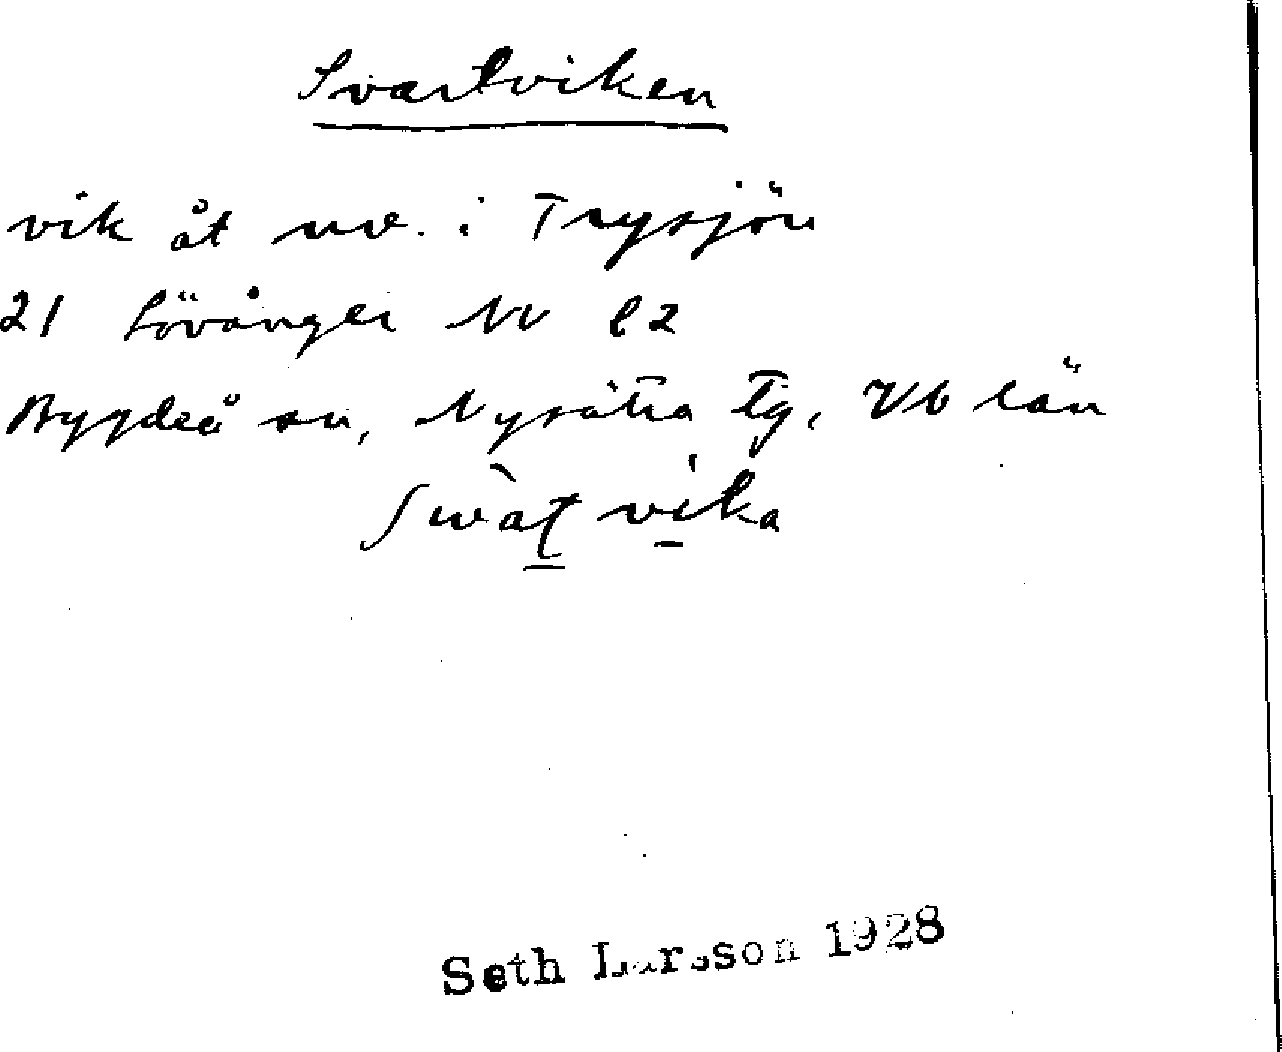 Svartviken
vik åt nv. i Trysjön
21 Lövånger NV l2
Bygdeå sn, Nysätra Tg, Vb län
vika
Seth Larsson 1928